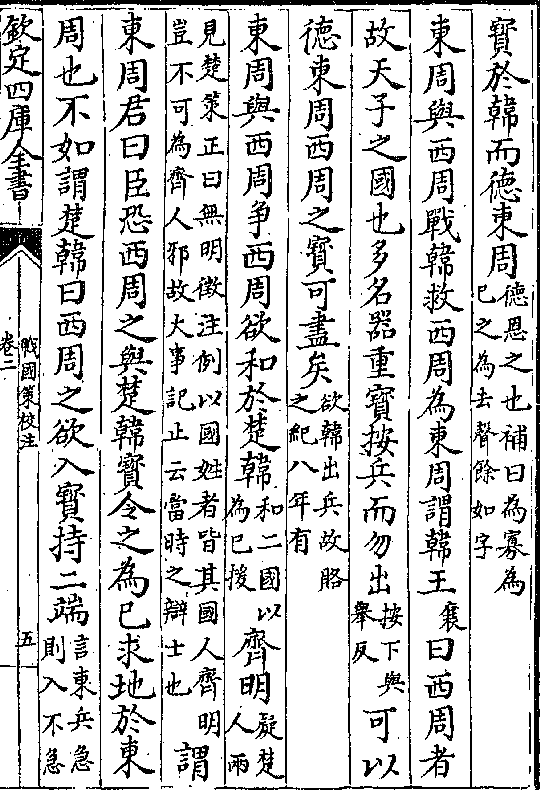 寶於韓而德東周德恩之也補曰為寡為
已之為去聲餘如字
東周與西周戰韓救西周為東周謂韓王襄曰西周者
故天子之國也多名器重寶按兵而勿出按下與
舉反可以
德東周西周之寶可盡矣欲韓出兵故賂
之紀八年有
東周與西周爭西周欲和於楚韓和二國以
為已援齊明疑楚
人兩
見楚策正曰無明徵注例以國姓者皆其國人齊明
豈不可為齊人邪故大事記止云當時之辯士也謂
東周君曰臣恐西周之與楚韓寶令之為已求地於東
周也不如謂楚韓曰西周之欲入寶持二端言東兵急
則入不急
欽定四庫全書
戰國策校注
卷二
五